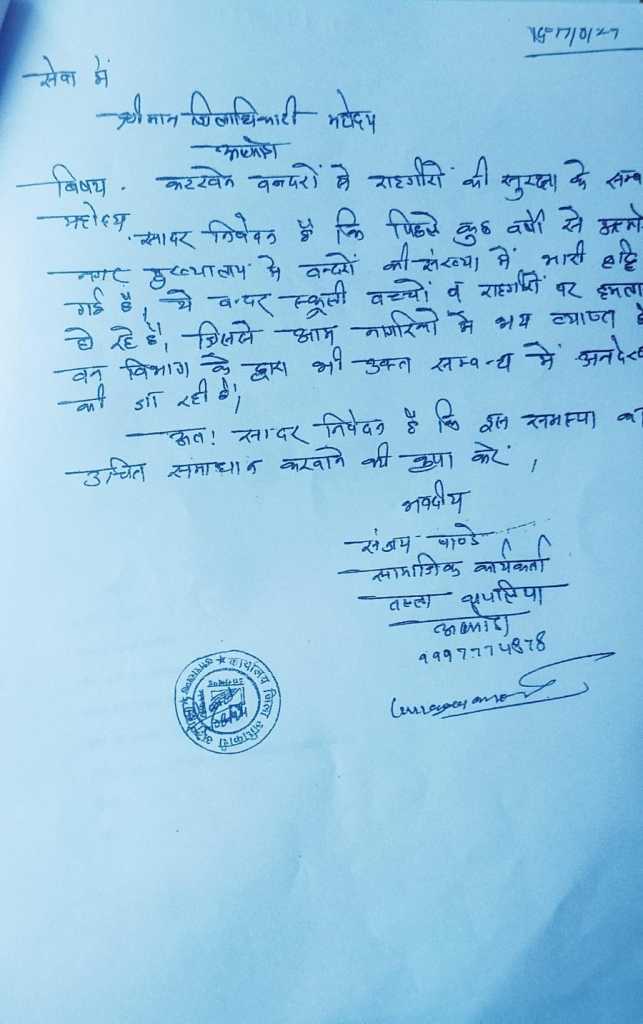 सेवा में
श्रीमान जिलाधिकारी महोदय
अल्मोड़ा
विषय - कटखने बन्दरों से राहगीरों की सुरक्षा के सम्ब
महोदय
सादर निवेदन है कि पिछले कुछ वर्षों से
नगर मुख्यालय में बन्दरों की संख्या में भारी वृद्धि
गई है, ये बन्दर स्कूली बच्चों व राहगीरों पर हमला
हो रहे है, जिससे आम नागरिकों में भय व्याप्त है
वन विभाग के द्वारा भी उक्त सम्बन्ध में अनदेख
की जा रही है,
अतः सादर निवेदन है कि इस समस्या का
उचित समाधान करवाने की कृपा करें,
भवदीय
संजय पाण्डे
सामाजिक कार्यकर्ता
तल्ला
अल्मोड़ा
9997774878
कार्यालय जिला अधिकारी